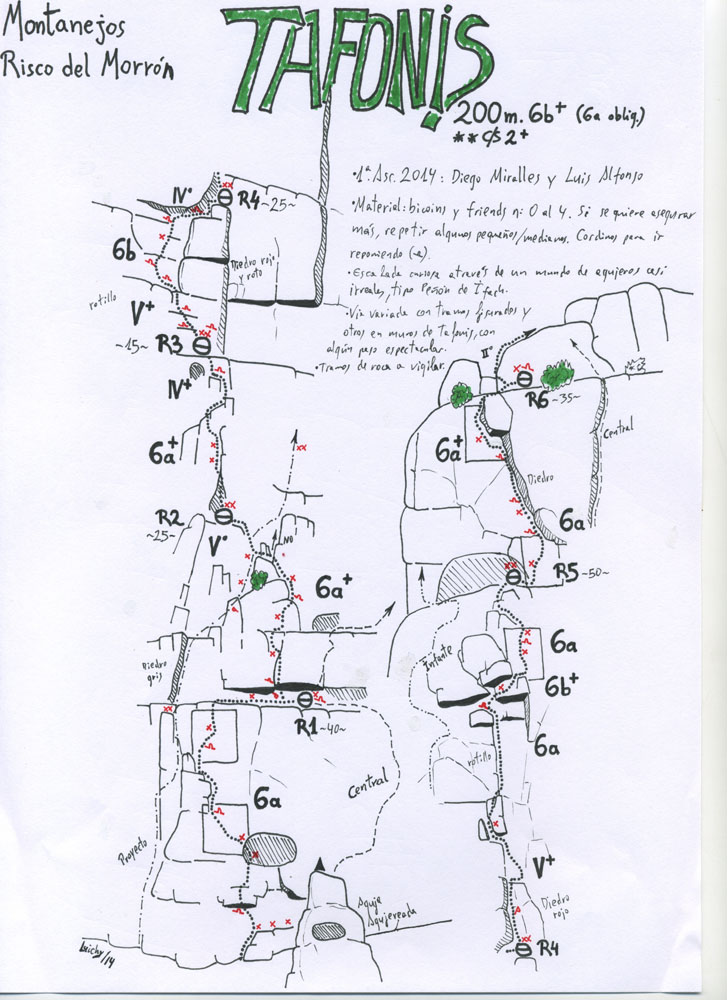 Montanejos
Risco del Morrón
TAFONIS
200m. 6b+ (6a oblig.)
1ª Asc. 2014: Diego Miralles y Luis Alfonso
•Material: bicoins y friends nº 0 al 4. Si se quiere asegurar
más, repetir algunos pequeños/medianos. Cordinos para ir
reponiendo
•Escalada curiosa através de un mundo de agujeros casi
irreales, tipo Peñón de Ifach.
•Vía variada con tramos fisurados y
otros en muros de Tafonis, con
algún paso espectacular.
•Tramos de roca a vigilar.
IVº
R4 ~25~
6b
Diedro rojo
y roto
rotillo
V+
~15~ R3
IV+
6a+
R2
~25~
Vº
NO
6a+
Diedro
gris
R1 ~40~
6a
Central
Proyecto
Aguja
Agujereada
/14
IIº
R6 ~35~
6a+
Central
Diedro
6a
R5 ~50~
Infante
6a
6b+
6a
rotillo
V+
Diedro
rojo
R4